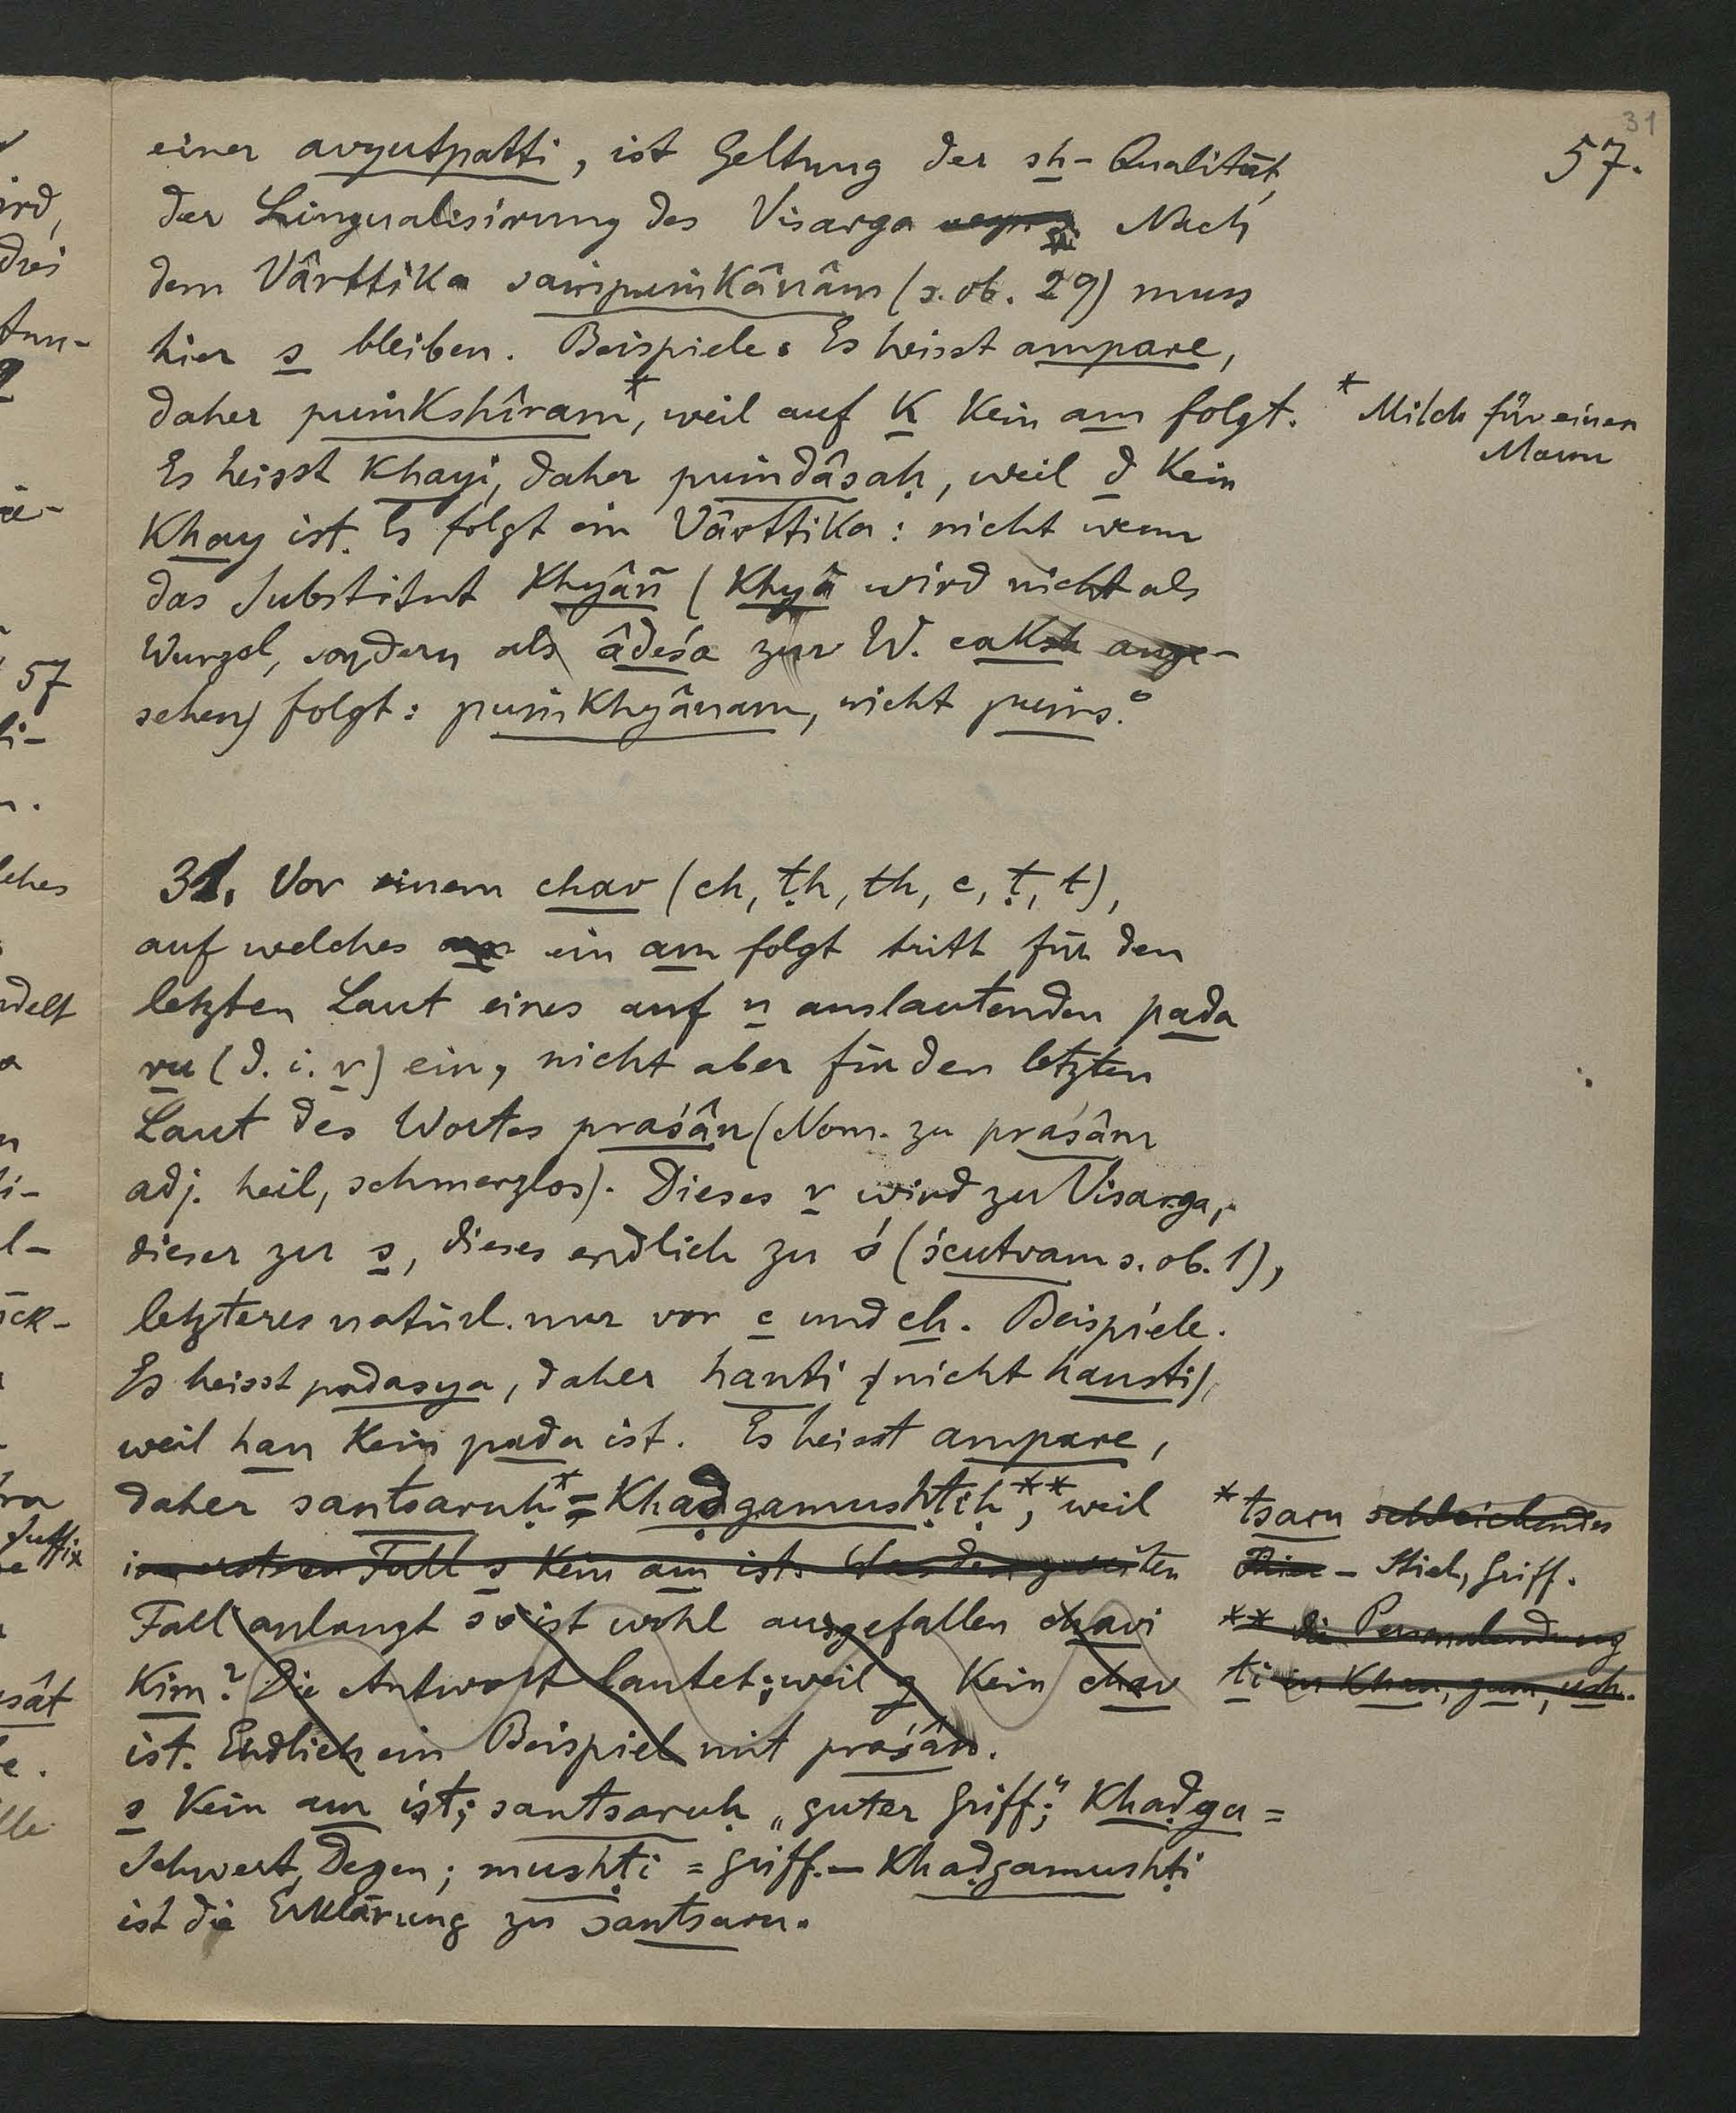 31
57.
einer avyutpatti, ist Geltung der sh-Qualität,
der Lingualisirung des Visarga Nach
dem Vârttika saṁpuṁkânâm (s. ob. 29) muss
hier s bleiben. Beispiele: Es heisst ampare,
daher puṁkshîram*, weil auf k kein am folgt.
* Milch für einen
Mann
Es heisst khayi, daher puṁdâsaḥ, weil d kein
khay ist. Es folgt ein Vârttika: nicht wenn
das Substitut khyâñ (khyâ wird nicht als
Wurzel, sondern als âdeśa zur W. caksh ange-
sehen) folgt: puṁkhyânam, nicht puṁs°.
31. Vor einem chav (ch, ṭh, th, c, ṭ, t),
auf welches ein am folgt tritt für den
letzten Laut eines auf n auslautenden pada
ru (d. i. r) ein, nicht aber für den letzten
Laut des Wortes praśân (Nom. zu praśâm
adj. heil, schmerzlos). Dieses r wird zu Visarga,
dieser zu s, dieses endlich zu ś (ścutvam s. ob. 1),
letzteres natürl. nur vor c und ch. Beispiele.
Es heisst padasya, daher hanti (nicht hansti),
weil han kein pada ist. Es heisst ampare,
daher santsaruḥ* = khaḍgamushṭiḥ**, weil
im ersten Fall s kein am ist. Was den zweiten
Fall anlangt so ist wohl ausgefallen chavi
kim? Die Antwort lautet: weil g kein chav
ist. Endlich ein Beispiel mit praśân.
* tsaru schleichendes
Thier – Stiel, Griff.
** die Personalendung
ti in khan, gam, ush.
s kein am ist; santsaruḥ „guter Griff“; khaḍga =
Schwert, Degen; mushṭi = Griff. – khaḍgamushṭi
ist die Erklärung zu santsaru.